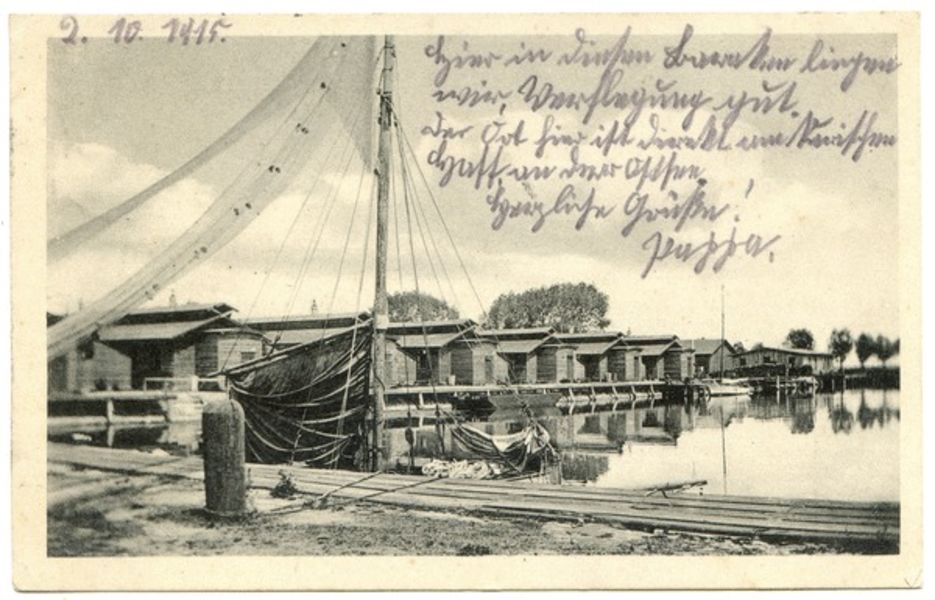 2. 10. 1915.
Hier in diesen Baracken liegen
wir, Verpflegung gut.
Der Ort hier ist direkt am Kurischen
Haff, an der Ostsee.
Herzliche Grüße!
Pappa.